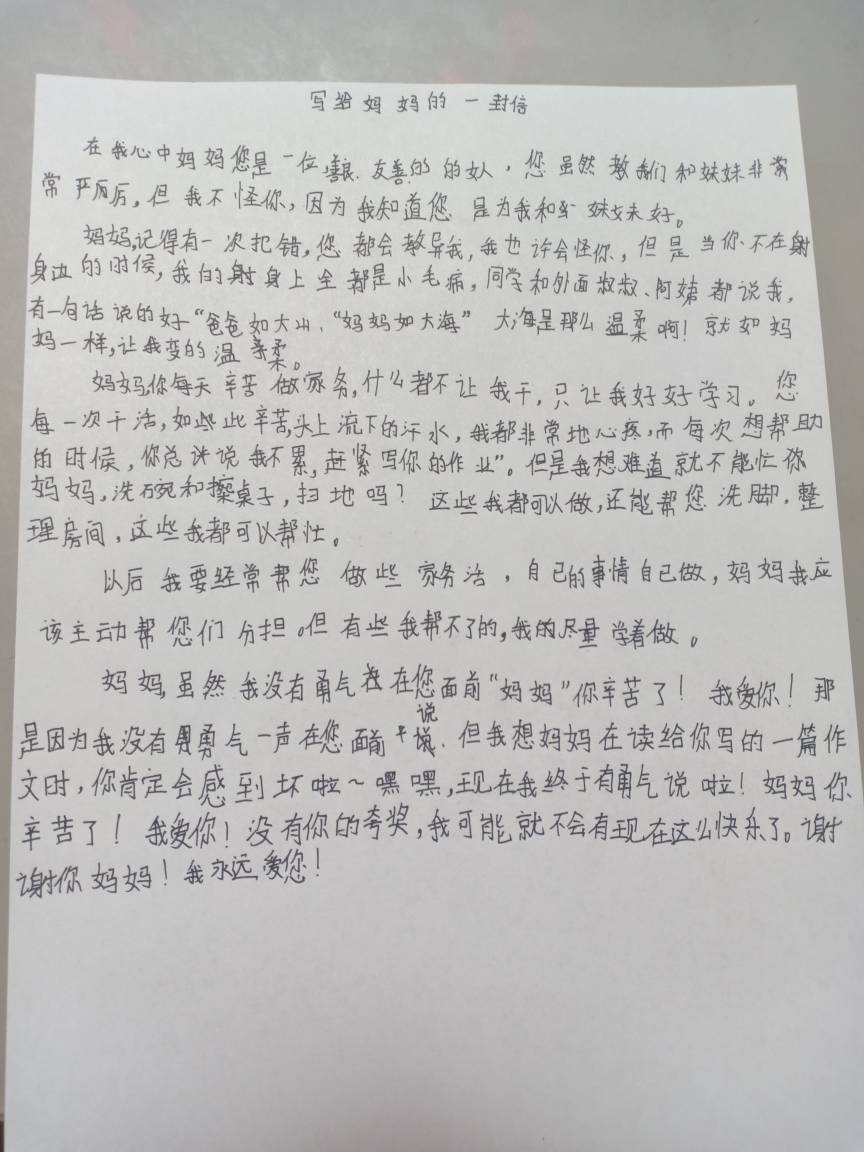 写给妈妈的一封信
在我心中妈妈您是一位善良.友善的的女人,您虽然教我们和妹妹非常
常严厉厉,但我不怪你,因为我知道您是为我和妹妹好。
妈妈,记得有一次犯错,您都会教导我,我也许会怪你,但是当你不在射
身边的时候,我的射身上全都是小毛病,同学和外面叔叔、阿姨都说我,
有一句话说的好“爸爸如大山、“妈妈如大海”大海是那么温柔啊!就如妈
妈一样,让我变的温柔。
妈妈,你每天辛苦做家务,什么都不让我干,只让我好好学习。您
每一次干活,如此辛苦,头上流下的汗水,我都非常地心疼,而每次想帮助
的时候,你总说我不累,赶紧写你的作业”。但是我想难道就不能忙你
妈妈,洗碗和擦桌子,扫地吗?这些我都可以做,还能帮您洗脚.整
理房间,这些我都可以帮忙。
以后我要经常帮您做些家务活,自己的事情自己做,妈妈我应
该主动帮您们分担。但有些我帮不了的,我的尽量学着做。
妈妈,虽然我没有勇气在您面前“妈妈”你辛苦了!我爱你!那
是因为我没有勇气一声在您面前说.但我想妈妈在读给你写的一篇作
文时,你肯定会感到坏啦~嘿嘿,现在我终于有勇气说啦!妈妈你
辛苦了!我爱你!没有你的夸奖,我可能就不会有现在这么快乐了。谢
谢你妈妈!我永远爱您!